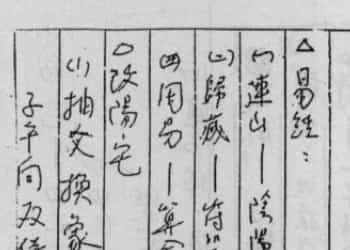 △易經：
(一)連山—陰陽
(二)歸藏—符
(四)周易—算
△改陽宅
(1)抽爻換象
子午向双